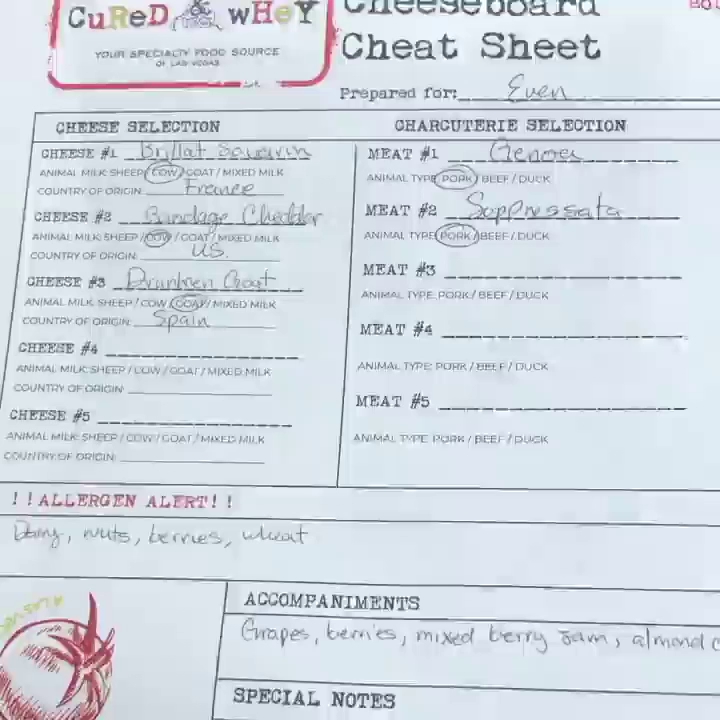 CuReD & wHeY
YOUR SPECIALTY FOOD SOURCE
OF LAS VEGAS
Cheeseboard
Cheat Sheet
Prepared for: Even
CHEESE SELECTION
CHEESE #1 Brillat Savarin
ANIMAL MILK: SHEEP/COW/GOAT/MIXED MILK
COUNTRY OF ORIGIN: France
CHEESE #2 Bandage Cheddar
ANIMAL MILK: SHEEP/COW/GOAT/MIXED MILK
COUNTRY OF ORIGIN: US.
CHEESE #3 Drunken Goat
ANIMAL MILK: SHEEP/COW/GOAT/MIXED MILK
COUNTRY OF ORIGIN: Spain
CHEESE #4
ANIMAL MILK: SHEEP/COW/GOAT/MIXED MILK
COUNTRY OF ORIGIN:
CHEESE #5
ANIMAL MILK: SHEEP/COW/GOAT/MIXED MILK
COUNTRY OF ORIGIN:
CHARCUTERIE SELECTION
MEAT #1 Genoa
ANIMAL TYPE: PORK/BEEF/DUCK
MEAT #2 Soppressata
ANIMAL TYPE: PORK/BEEF/DUCK
MEAT #3
ANIMAL TYPE: PORK/BEEF/DUCK
MEAT #4
ANIMAL TYPE: PORK/BEEF/DUCK
MEAT #5
ANIMAL TYPE: PORK/BEEF/DUCK
!!ALLERGEN ALERT!!
Dairy, nuts, berries, wheat
ACCOMPANIMENTS
Grapes, berries, mixed berry jam, almond
SPECIAL NOTES